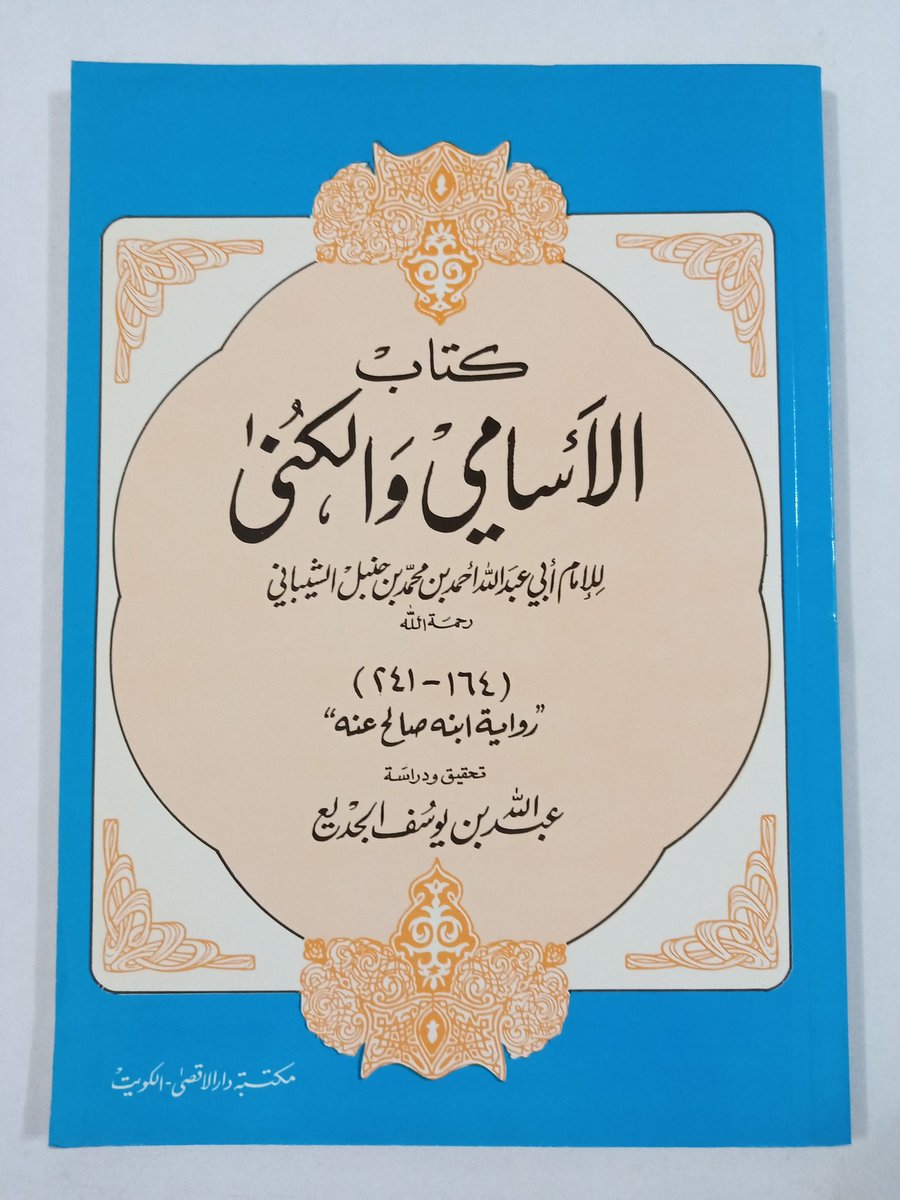 كتاب
الأَسامي وَالكُنىٰ
للإمام أبي عبد الله أحمد بن محمّد بن حنبل الشيباني
رحمة الله
(١٦٤ - ٢٤١)
”رواية ابنه صالح عنه“
تحقيق ودراسة
عبد الله بن يوسُف الجديع
مكتبة دار الاقصىٰ - الكويت